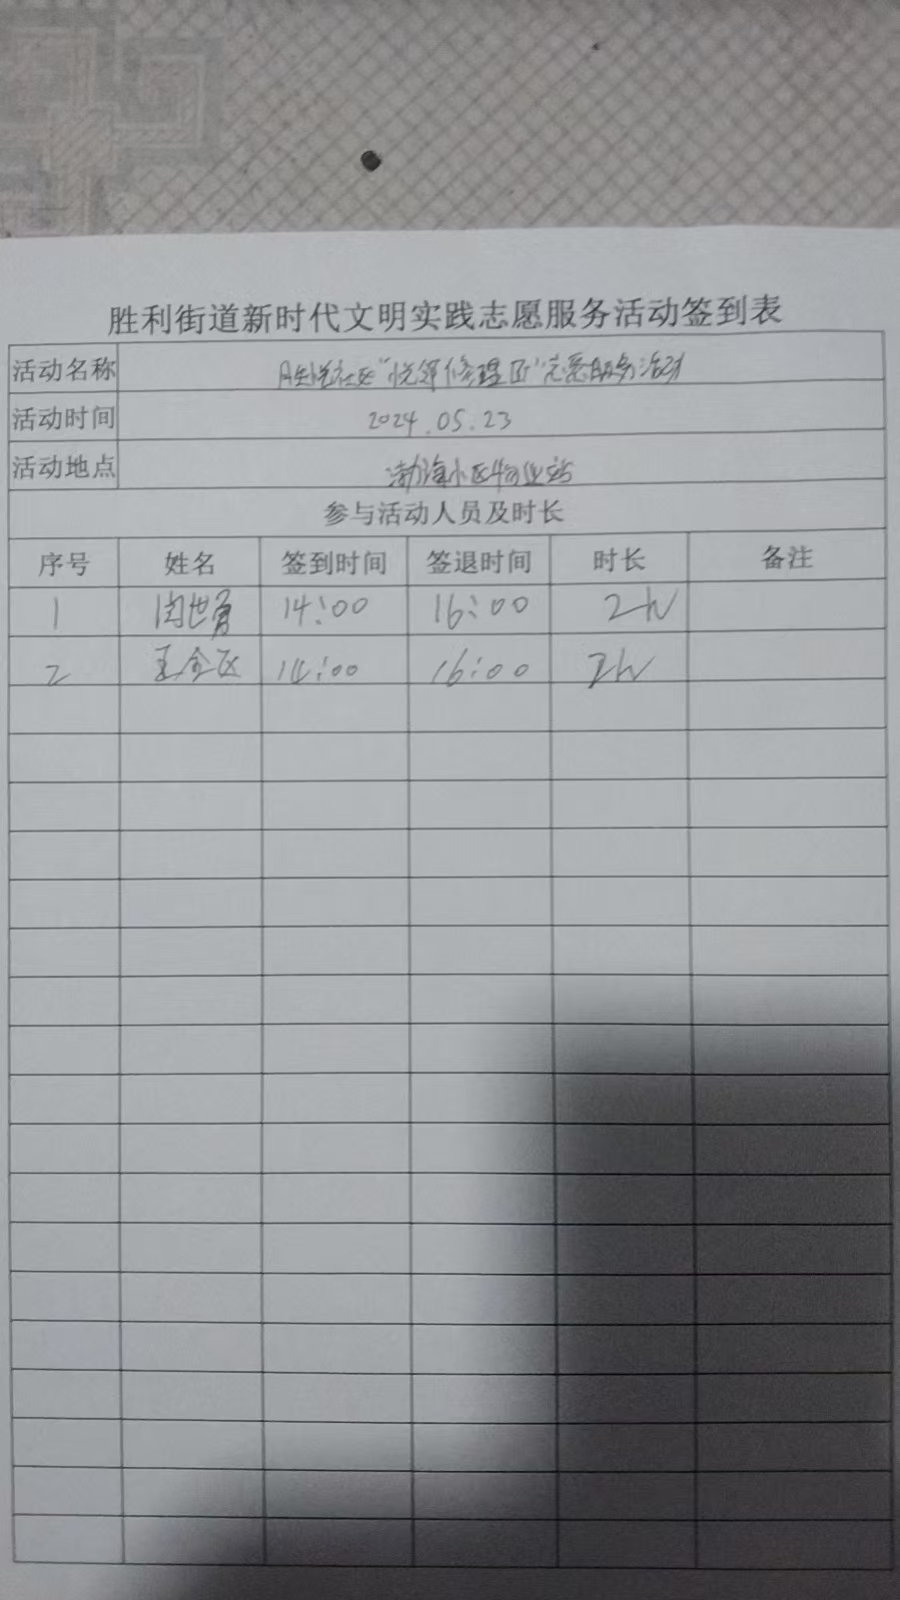 胜利街道新时代文明实践志愿服务活动签到表
活动名称 胜悦社区“悦邻修理匠”志愿服务活动
活动时间 2024.05.23
活动地点 渤海小区物业站
参与活动人员及时长
序号 姓名 签到时间 签退时间 时长 备注
1 闵世勇 14:00 16:00 2h
2 14:00 16:00 2h